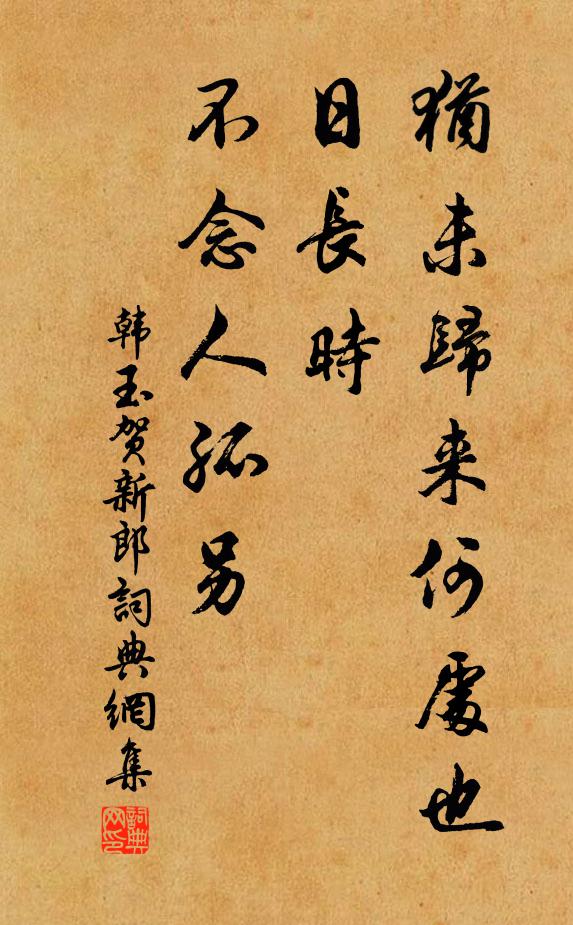 猶未歸来何處也
日長時
不念人孤另
韩玉贺新郎詞典網集
詞典
网印